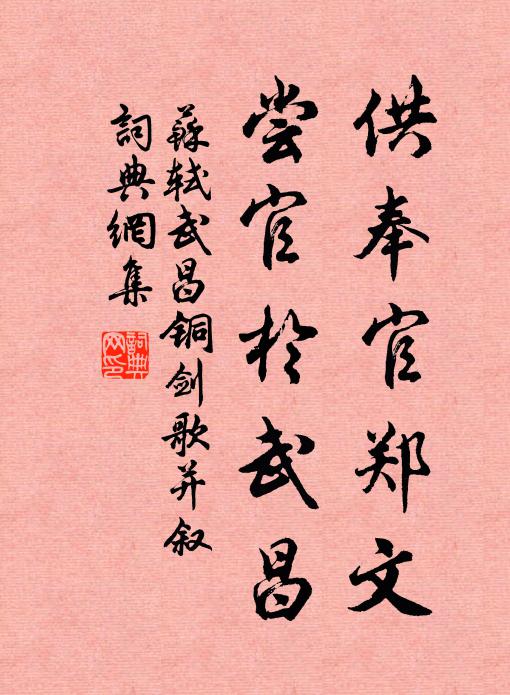 供奉官郑文
尝官於武昌
蘇軾武昌铜剑歌并叙
詞典網集
詞典
网印